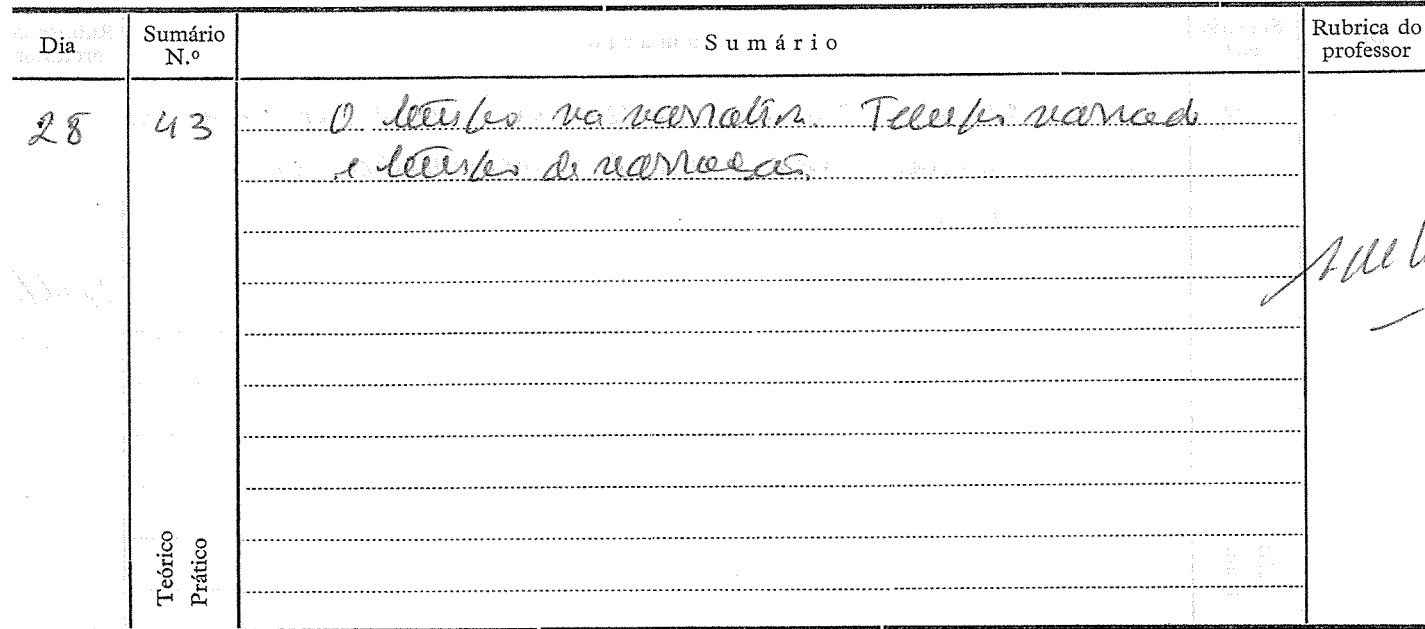 Dia Sumário N.º Sumário Rubrica do professor
28 43 O tempo na narrativa. Tempo narrado
e tempo da narração.
Teórico
Prático